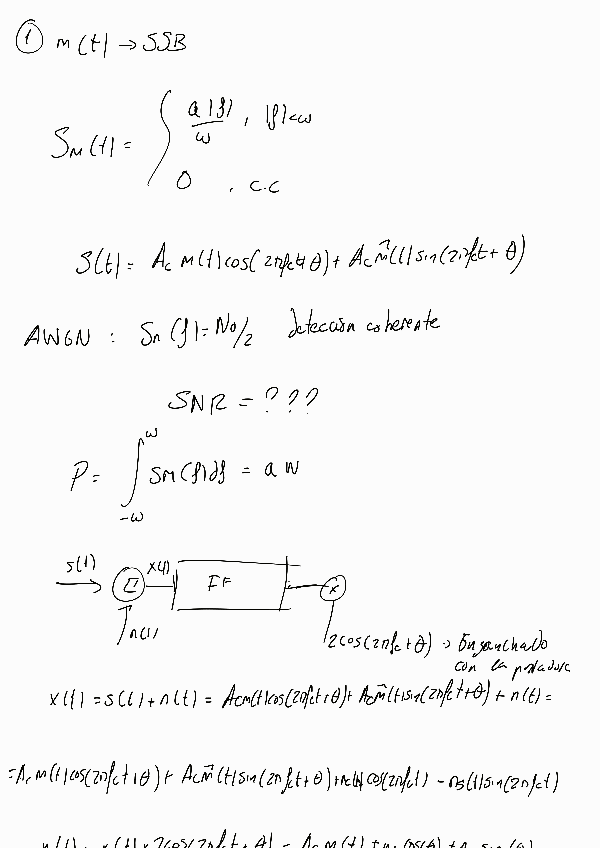 ① m(t) → SSB
S_M(t) = { a|f|/w , |f|<w
0 , c.c
S(t) = Ac m(t) cos(2πfct+θ) + Ac m̂(t) sin(2πfct+θ)
AWGN : Sn(f) = No/2 detección coherente
SNR = ???
P = ∫_{-w}^{w} SM(f)df = a W
s(t) x(t) FF x
Σ
n(t) 2cos(2πfct+θ) → Enganchado
con la portadora
x(t) = s(t) + n(t) = Acm(t)cos(2πfct+θ) + Acm̂(t)sin(2πfct+θ) + n(t) =
= Ac m(t)cos(2πfct+θ) + Acm̂(t)sin(2πfct+θ) + nc(t)cos(2πfct) - ns(t)sin(2πfct)